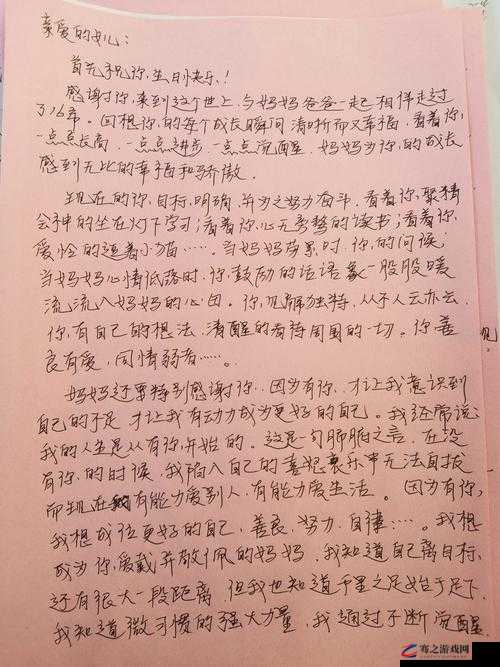 亲爱的女儿：
首先祝你，生日快乐！
感谢你，来到这个世上，与妈妈爸爸一起相伴走过
了16年。回想你的每个成长瞬间清晰而又幸福，看着你，
一点点长高，一点点进步，一点点觉醒，妈妈为你的成长
感到无比的幸福和骄傲。
现在的你，目标，明确，并为之努力奋斗，看着你，聚精
会神的坐在灯下学习；看着你，心无旁骛的读书；看着你，
爱怜的逗着小猫……。当妈妈劳累时，你，的问候
当妈妈心情低落时，你，鼓励的话语象一股股暖
流流入妈妈的心田。你，见解独特，从不人云亦云，
你，有自己的想法，清醒的看待周围的一切。你善
良有爱，同情弱者……。
妈妈还要特别感谢你，因为有你，才让我意识到
自己的不足，才让我有动力成为更好的自己。我经常说：
我的人生是从有你，开始的。这是一句肺腑之言，在没
有你，的时候，我陷入自己的喜怒哀乐中无法自拔
而现在有能力爱别人，有能力爱生活。因为有你，
我想成位更好的自己，善良、努力、自律……。我想
成为你，爱戴并敬佩的妈妈，我知道自己离目标，
还有很大一段距离，但我也知道千里之足始于足下，
我知道微习惯的强大力量，我通过不断觉醒
见
骞之游戏网